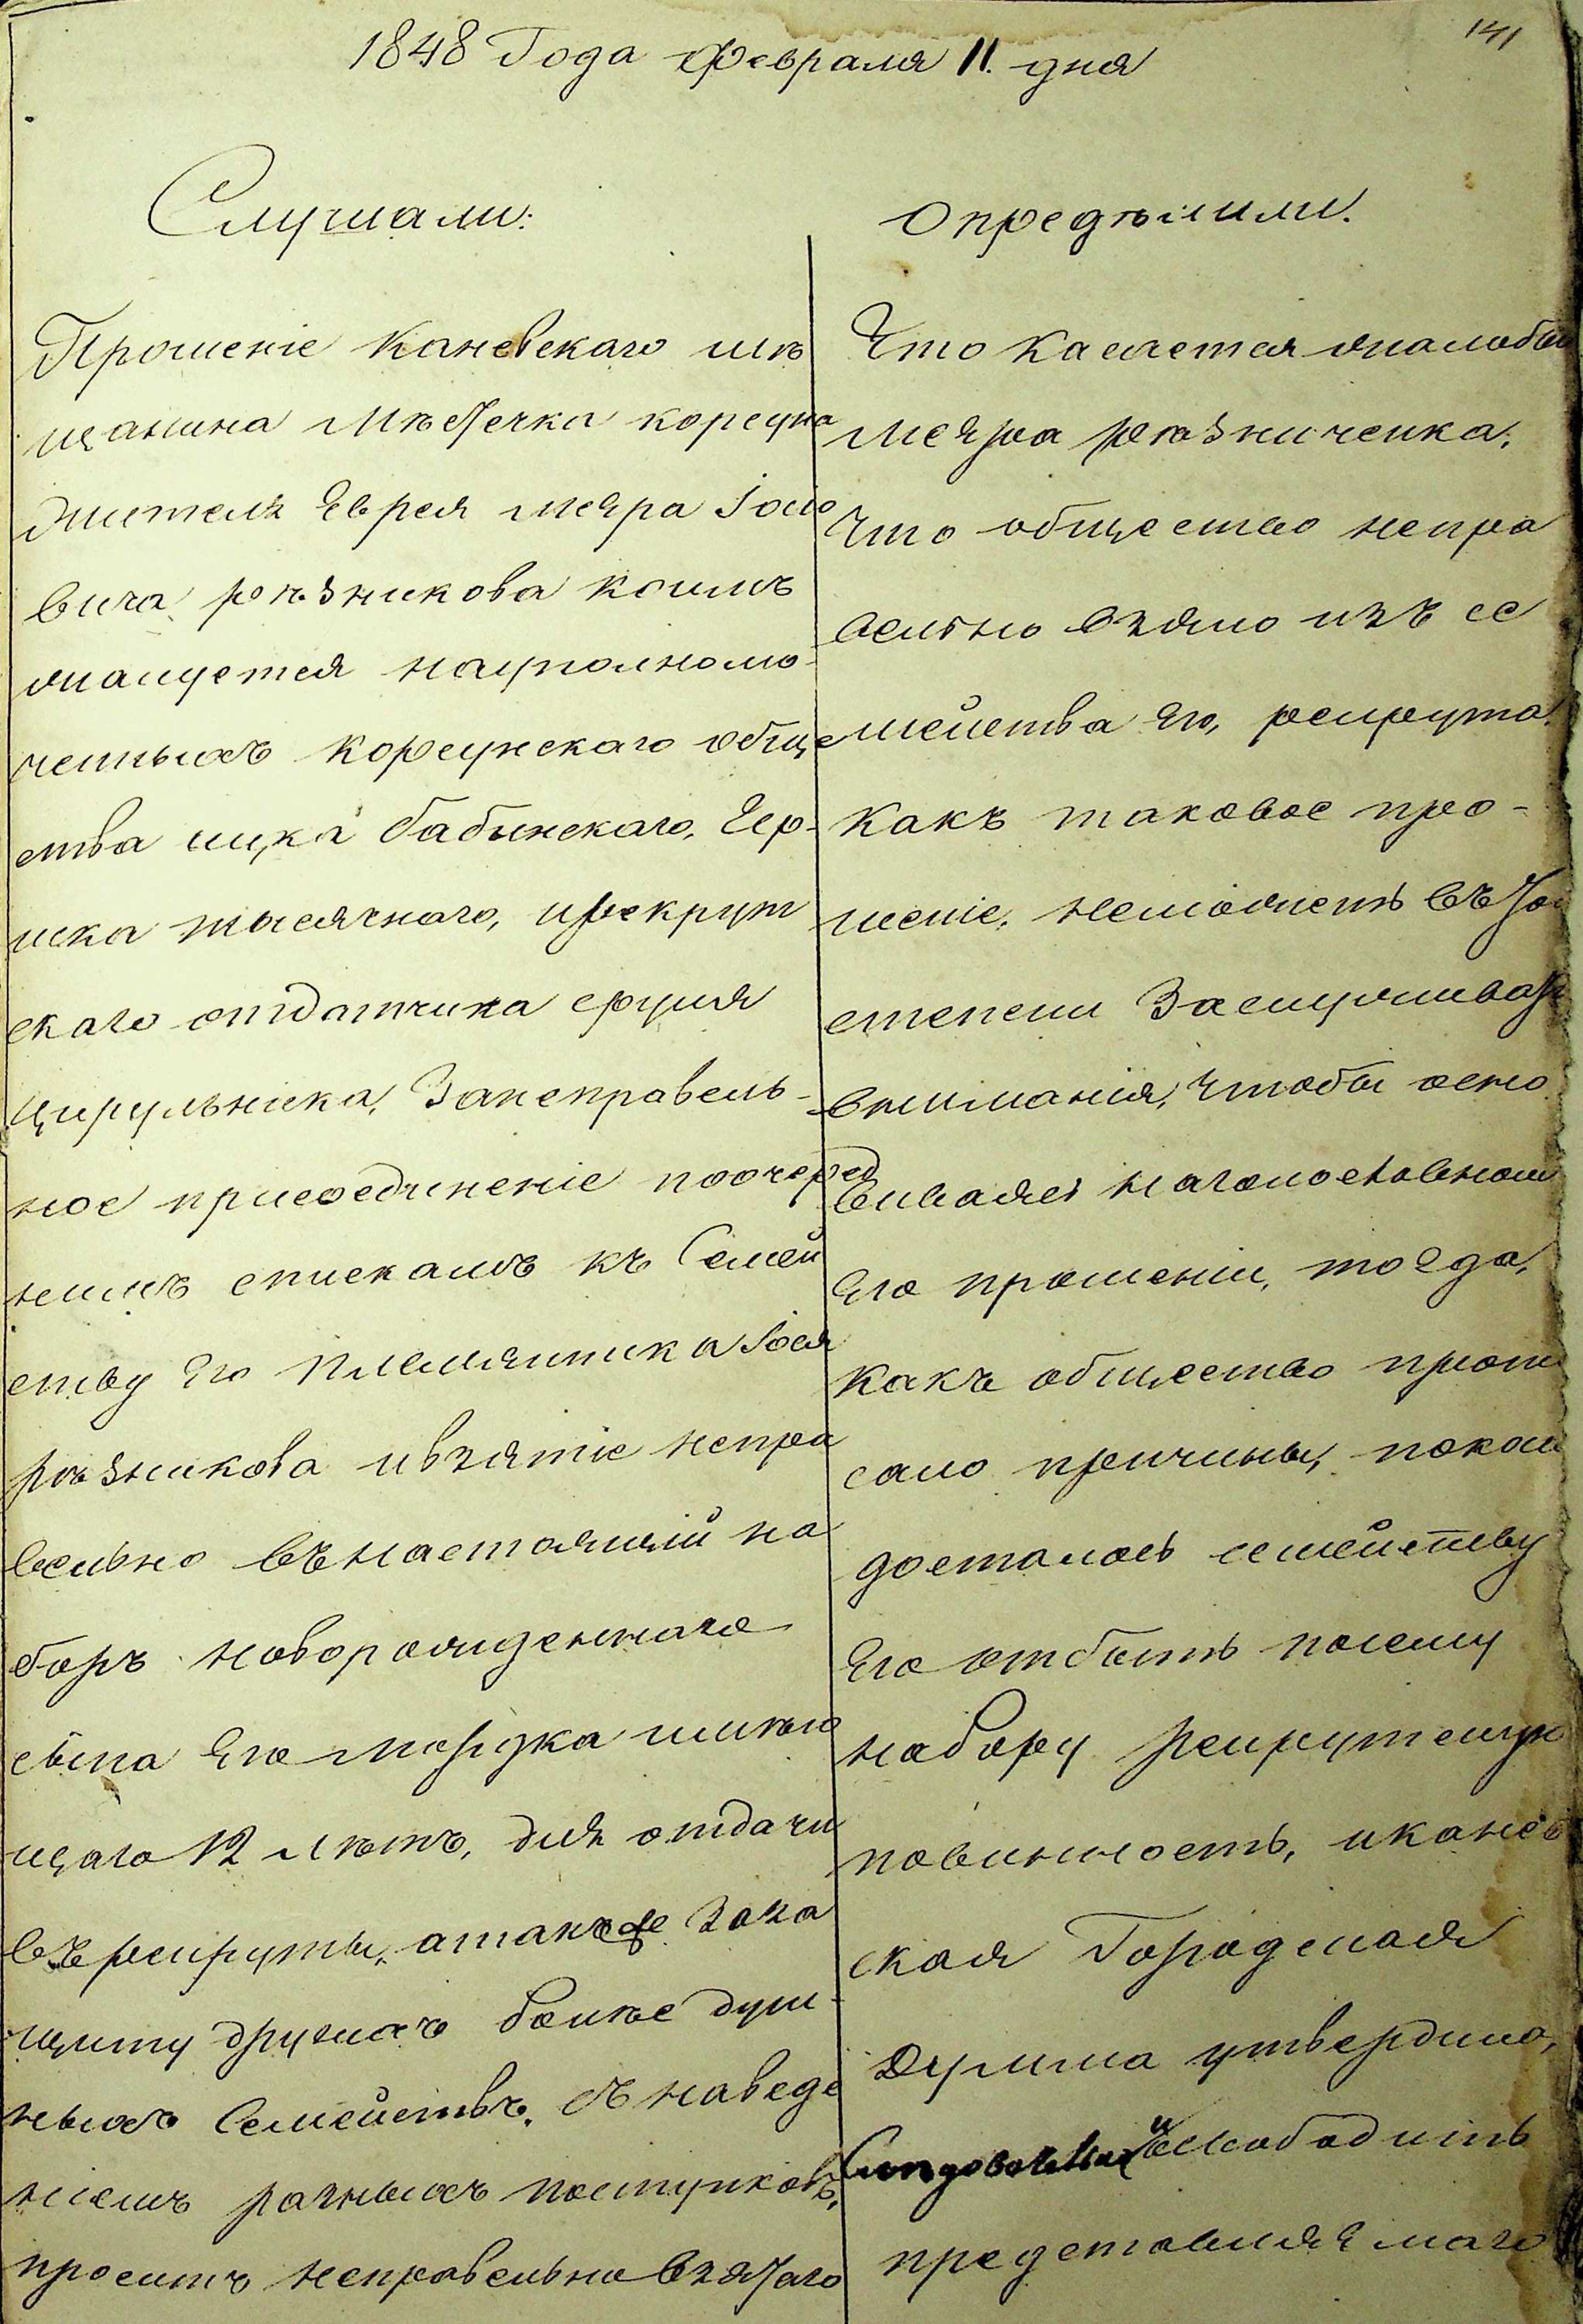 141
1848 Года Февраля 11. дня
Слушали:
Прошеніе Каневскаго мѣ
щанина Мѣстечка корсуна
жителя Еврея Меера Іосіо
вича рѣзникова коимъ
жалуется науполномо-
ченныхъ Корсунскаго обще
ства ицка бабинскаго, Гер-
шка тысячнаго, ирекрут
скаго отдатчика сруля
Цирульніка, Занеправель-
ное присоединеніе поочеред
нимъ спискамъ къ Семей
ству Его Племянника Іося
рѣзникова ивзятіе непра
вельно вънастоящій на
боръ новорожденнаго
сына Его Мордка имѣю
щаго 12 лѣтъ, для отдачи
въ рекруты, атакже Заза
щиту другихъ болѣе душ-
ныхъ Семействъ. съ наведе
ніемъ разныхъ поступковъ,
проситъ неправельно взятаго
опредѣлили.
Что касается жалобы
Меера рѣзниченка.
что общество непра
вельно взяло изъ се
мейства Его, рекрута.
какъ таковое про-
шеніе, неможетъ въ той
степени Заслуживать
вниманія, чтобы осно
вываясь наголословном
Его прошеніи, тогда,
какъ общество пропи
сало причины, покоим
досталось семейству
Его отбыть посему
набору рекрутскую
повинность, иканев
ская Городская
Дума утвердила,
Слѣдовательно и освободить
представляемаго